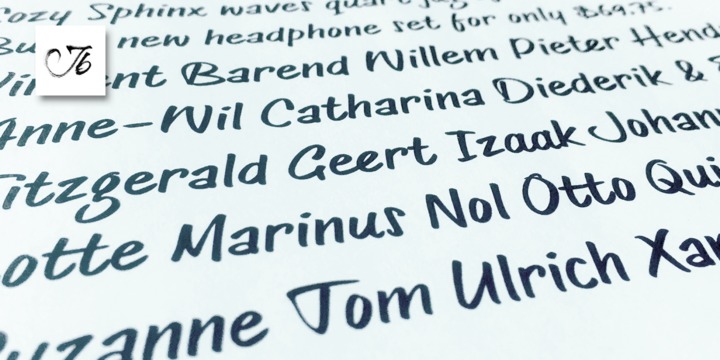 Cozy Sphinx waves quart jug
new headphone set for only $69,75.
nt Barend Willem Pieter Hend
Anne-Wil Catharina Diederik &
Fitzgerald Geert Izaak Johann
otte Marinus Nol Otto Qui
Suzanne Tom Ulrich Xan